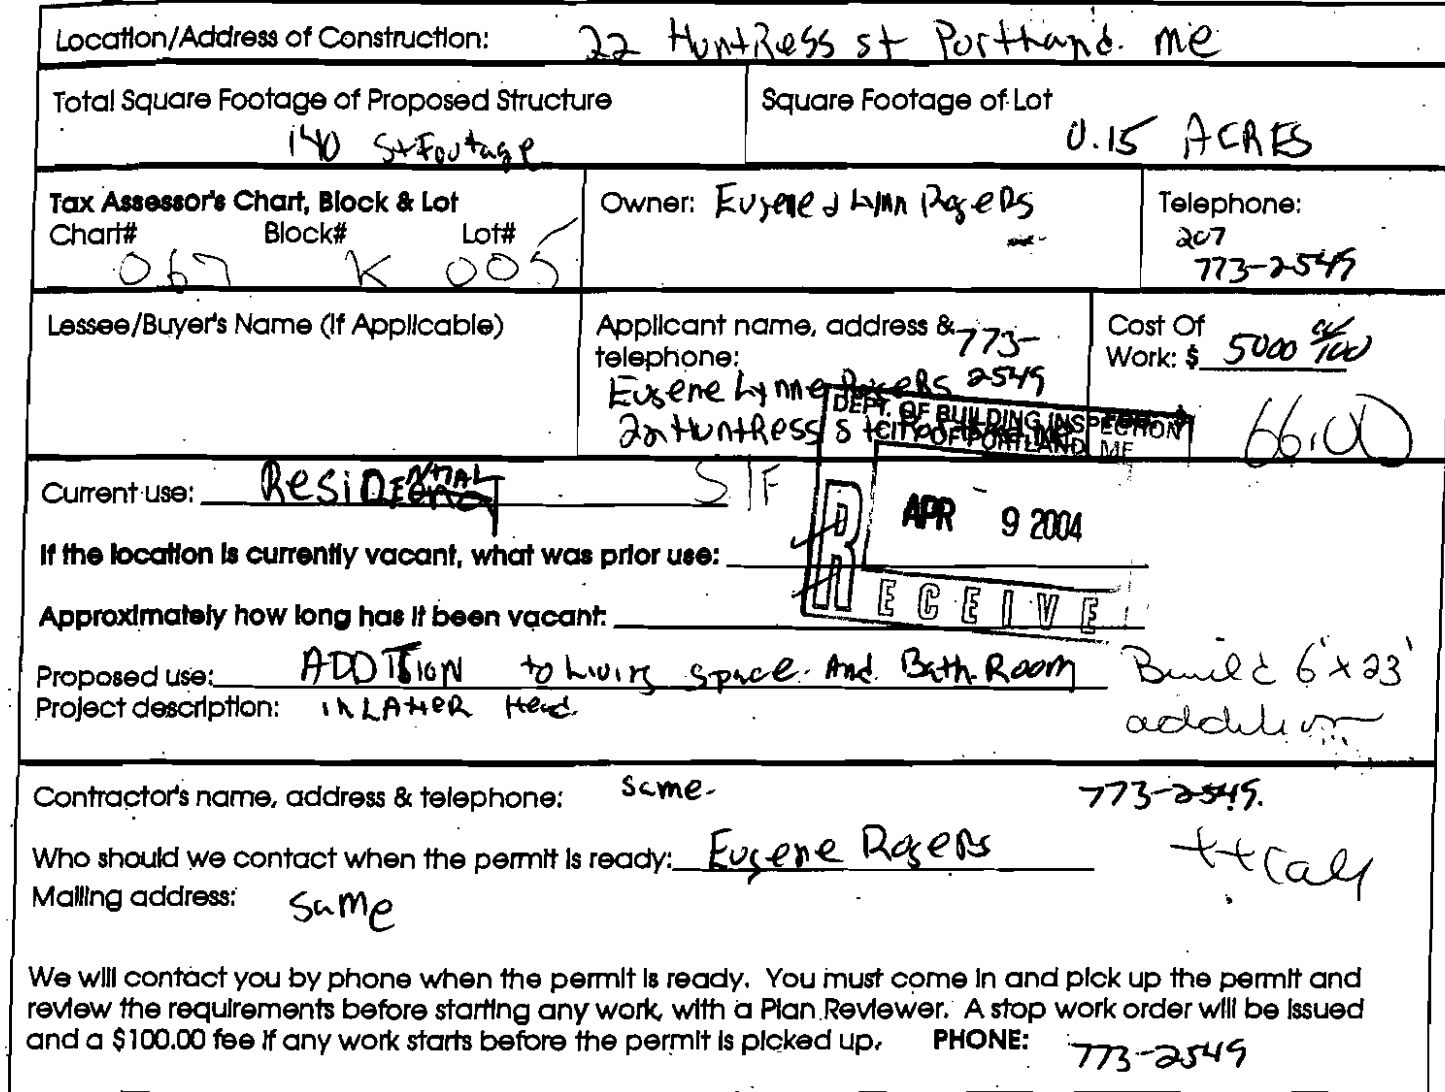 Location/Address of Construction: 22 HuntRess st Portland. me
Total Square Footage of Proposed Structure
140 St Footage
Square Footage of Lot
0.15 ACRES
Tax Assessor's Chart, Block & Lot
Chart# Block# Lot#
067 K 005
Owner: Eugene & Lynn Rogers
Telephone:
207
773-2549
Lessee/Buyer's Name (If Applicable)
Applicant name, address &
telephone:
773-
2549
Eugene Lynne Rogers
22 HuntRess St
Cost Of
Work: $ 5000
66.00
DEPT. OF BUILDING INSPECTION
CITY OF PORTLAND, ME
APR 9 2004
RECEIVE
Current use: Residential S/F
If the location is currently vacant, what was prior use:
Approximately how long has it been vacant:
Proposed use: ADDITION to Living space. And BathRoom
Build 6' x 23'
addition
Project description:
Contractor's name, address & telephone: same. 773-2549.
Who should we contact when the permit is ready: Eugene Rogers
Mailing address: Same
We will contact you by phone when the permit is ready. You must come in and pick up the permit and
review the requirements before starting any work, with a Plan Reviewer. A stop work order will be issued
and a $100.00 fee if any work starts before the permit is picked up. PHONE: 773-2549